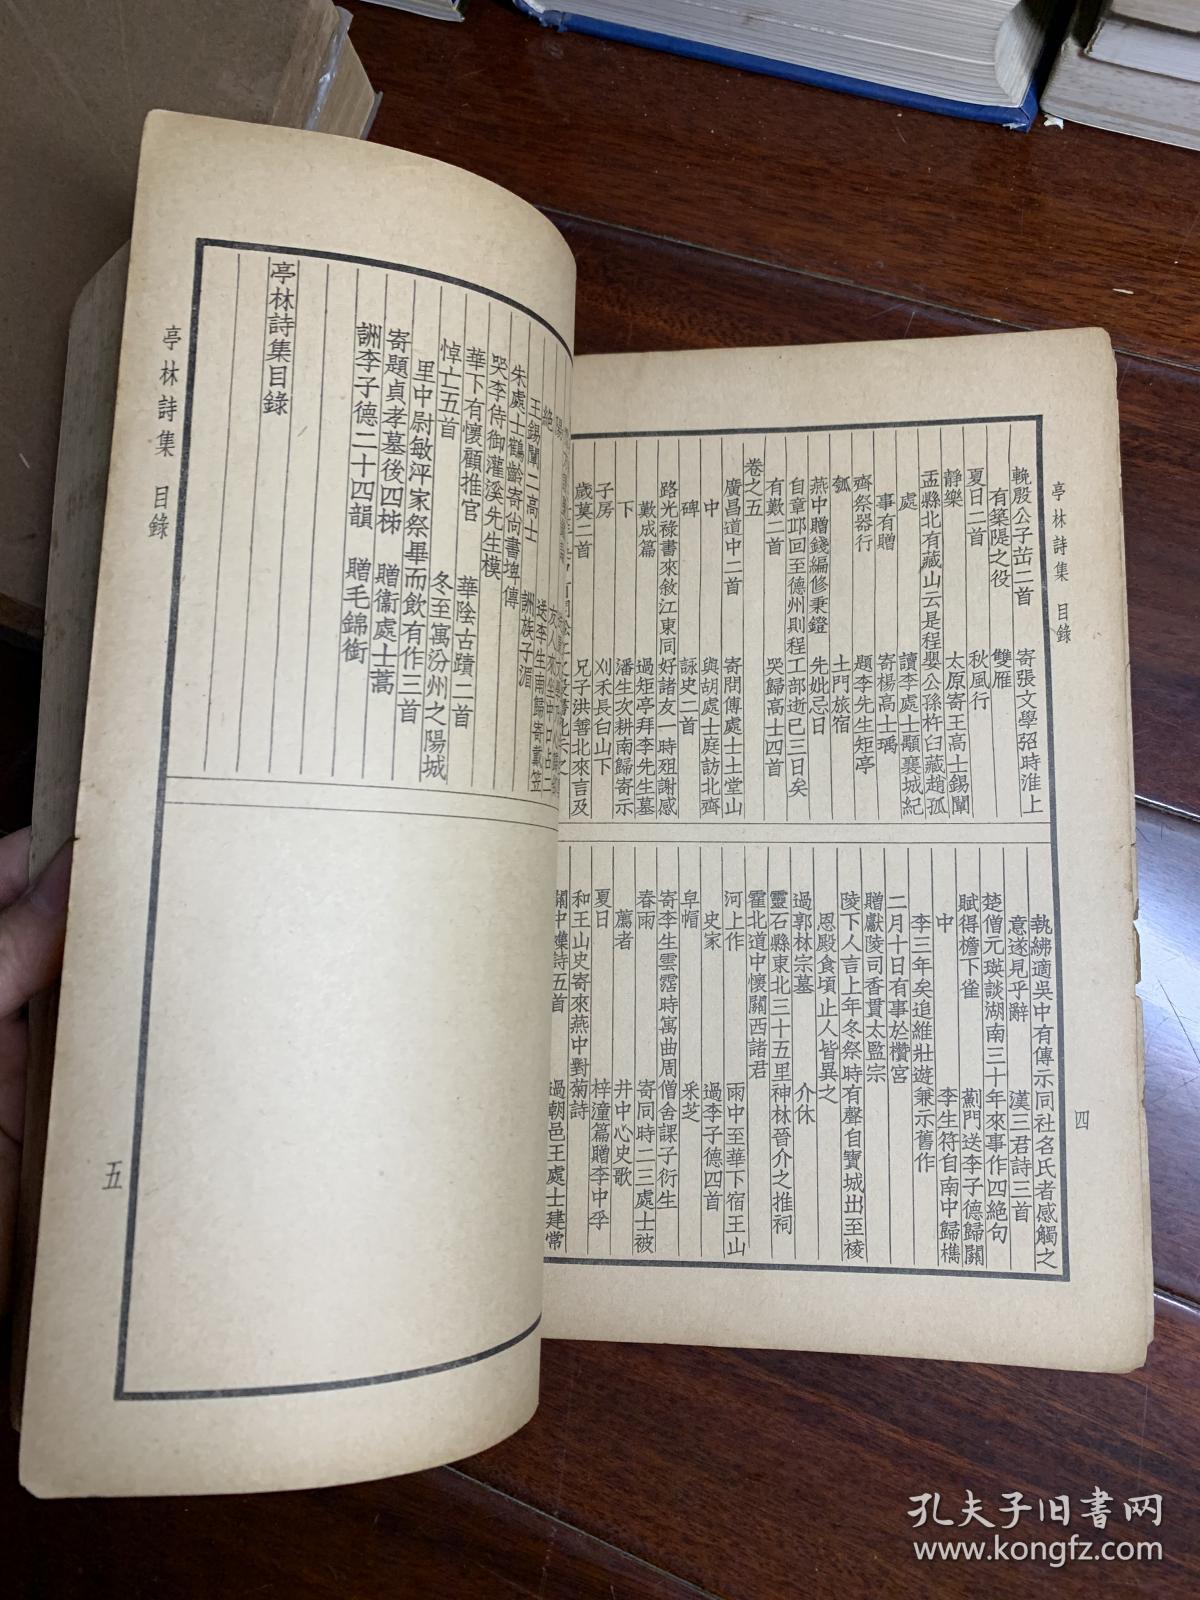 亭林詩集 目錄
四
輓殷公子岳二首 寄張文學弨時淮上
有築隄之役 雙雁
夏日二首 秋風行
靜樂 太原寄王高士錫闡
盂縣北有藏山云是程嬰公孫杵臼藏趙孤
處 讀李處士顒襄城紀
事有贈 寄楊高士瑀
齊祭器行 題李先生矩亭
瓠 土門旅宿
燕中贈錢編修秉鐙 先妣忌日
自章邱回至德州則程工部逝已三日矣
有歎二首 哭歸高士四首
卷之五
廣昌道中二首 寄問傅處士土堂山
中 與胡處士庭訪北齊
碑 詠史二首
路光祿書來敘江東同好諸友一時殂謝感
歎成篇 過矩亭拜李先生墓
下 潘生次耕南歸寄示
子房 刈禾長白山下
歲莫二首 兄子洪善北來言及
執紼適吳中有傳示同社名氏者感觸之
意遂見乎辭 漢三君詩三首
楚僧元瑛談湖南三十年來事作四絶句
賦得檐下雀 薊門送李子德歸關
中 李生符自南中歸檇
李三年矣追維壯遊兼示舊作
二月十日有事於欑宮
贈獻陵司香貫太監宗
陵下人言上年冬祭時有聲自寶城出至祾
恩殿食頃止人皆異之
過郭林宗墓 介休
靈石縣東北三十五里神林晉介之推祠
霍北道中懷關西諸君
河上作 雨中至華下宿王山
史家 過李子德四首
皁帽 采芝
寄李生雲霑時寓曲周僧舍課子衍生
春雨 寄同時二三處士被
薦者 井中心史歌
夏日 梓潼篇贈李中孚
和王山史寄來燕中對菊詩
關中雜詩五首 過朝邑王處士建常
王錫闡二高士 送李生南歸寄戴笠
朱處士鶴齡寄尚書埤傳
哭李侍御灌溪先生模 詶族子湄
華下有懷顧推官
悼亡五首 華陰古蹟二首
冬至寓汾州之陽城
里中尉敏泙家祭畢而飲有作三首
寄題貞孝墓後四柹 贈衞處士蒿
詶李子德二十四韻 贈毛錦銜
亭林詩集目錄
亭林詩集 目錄
五
孔夫子旧书网
www.kongfz.com